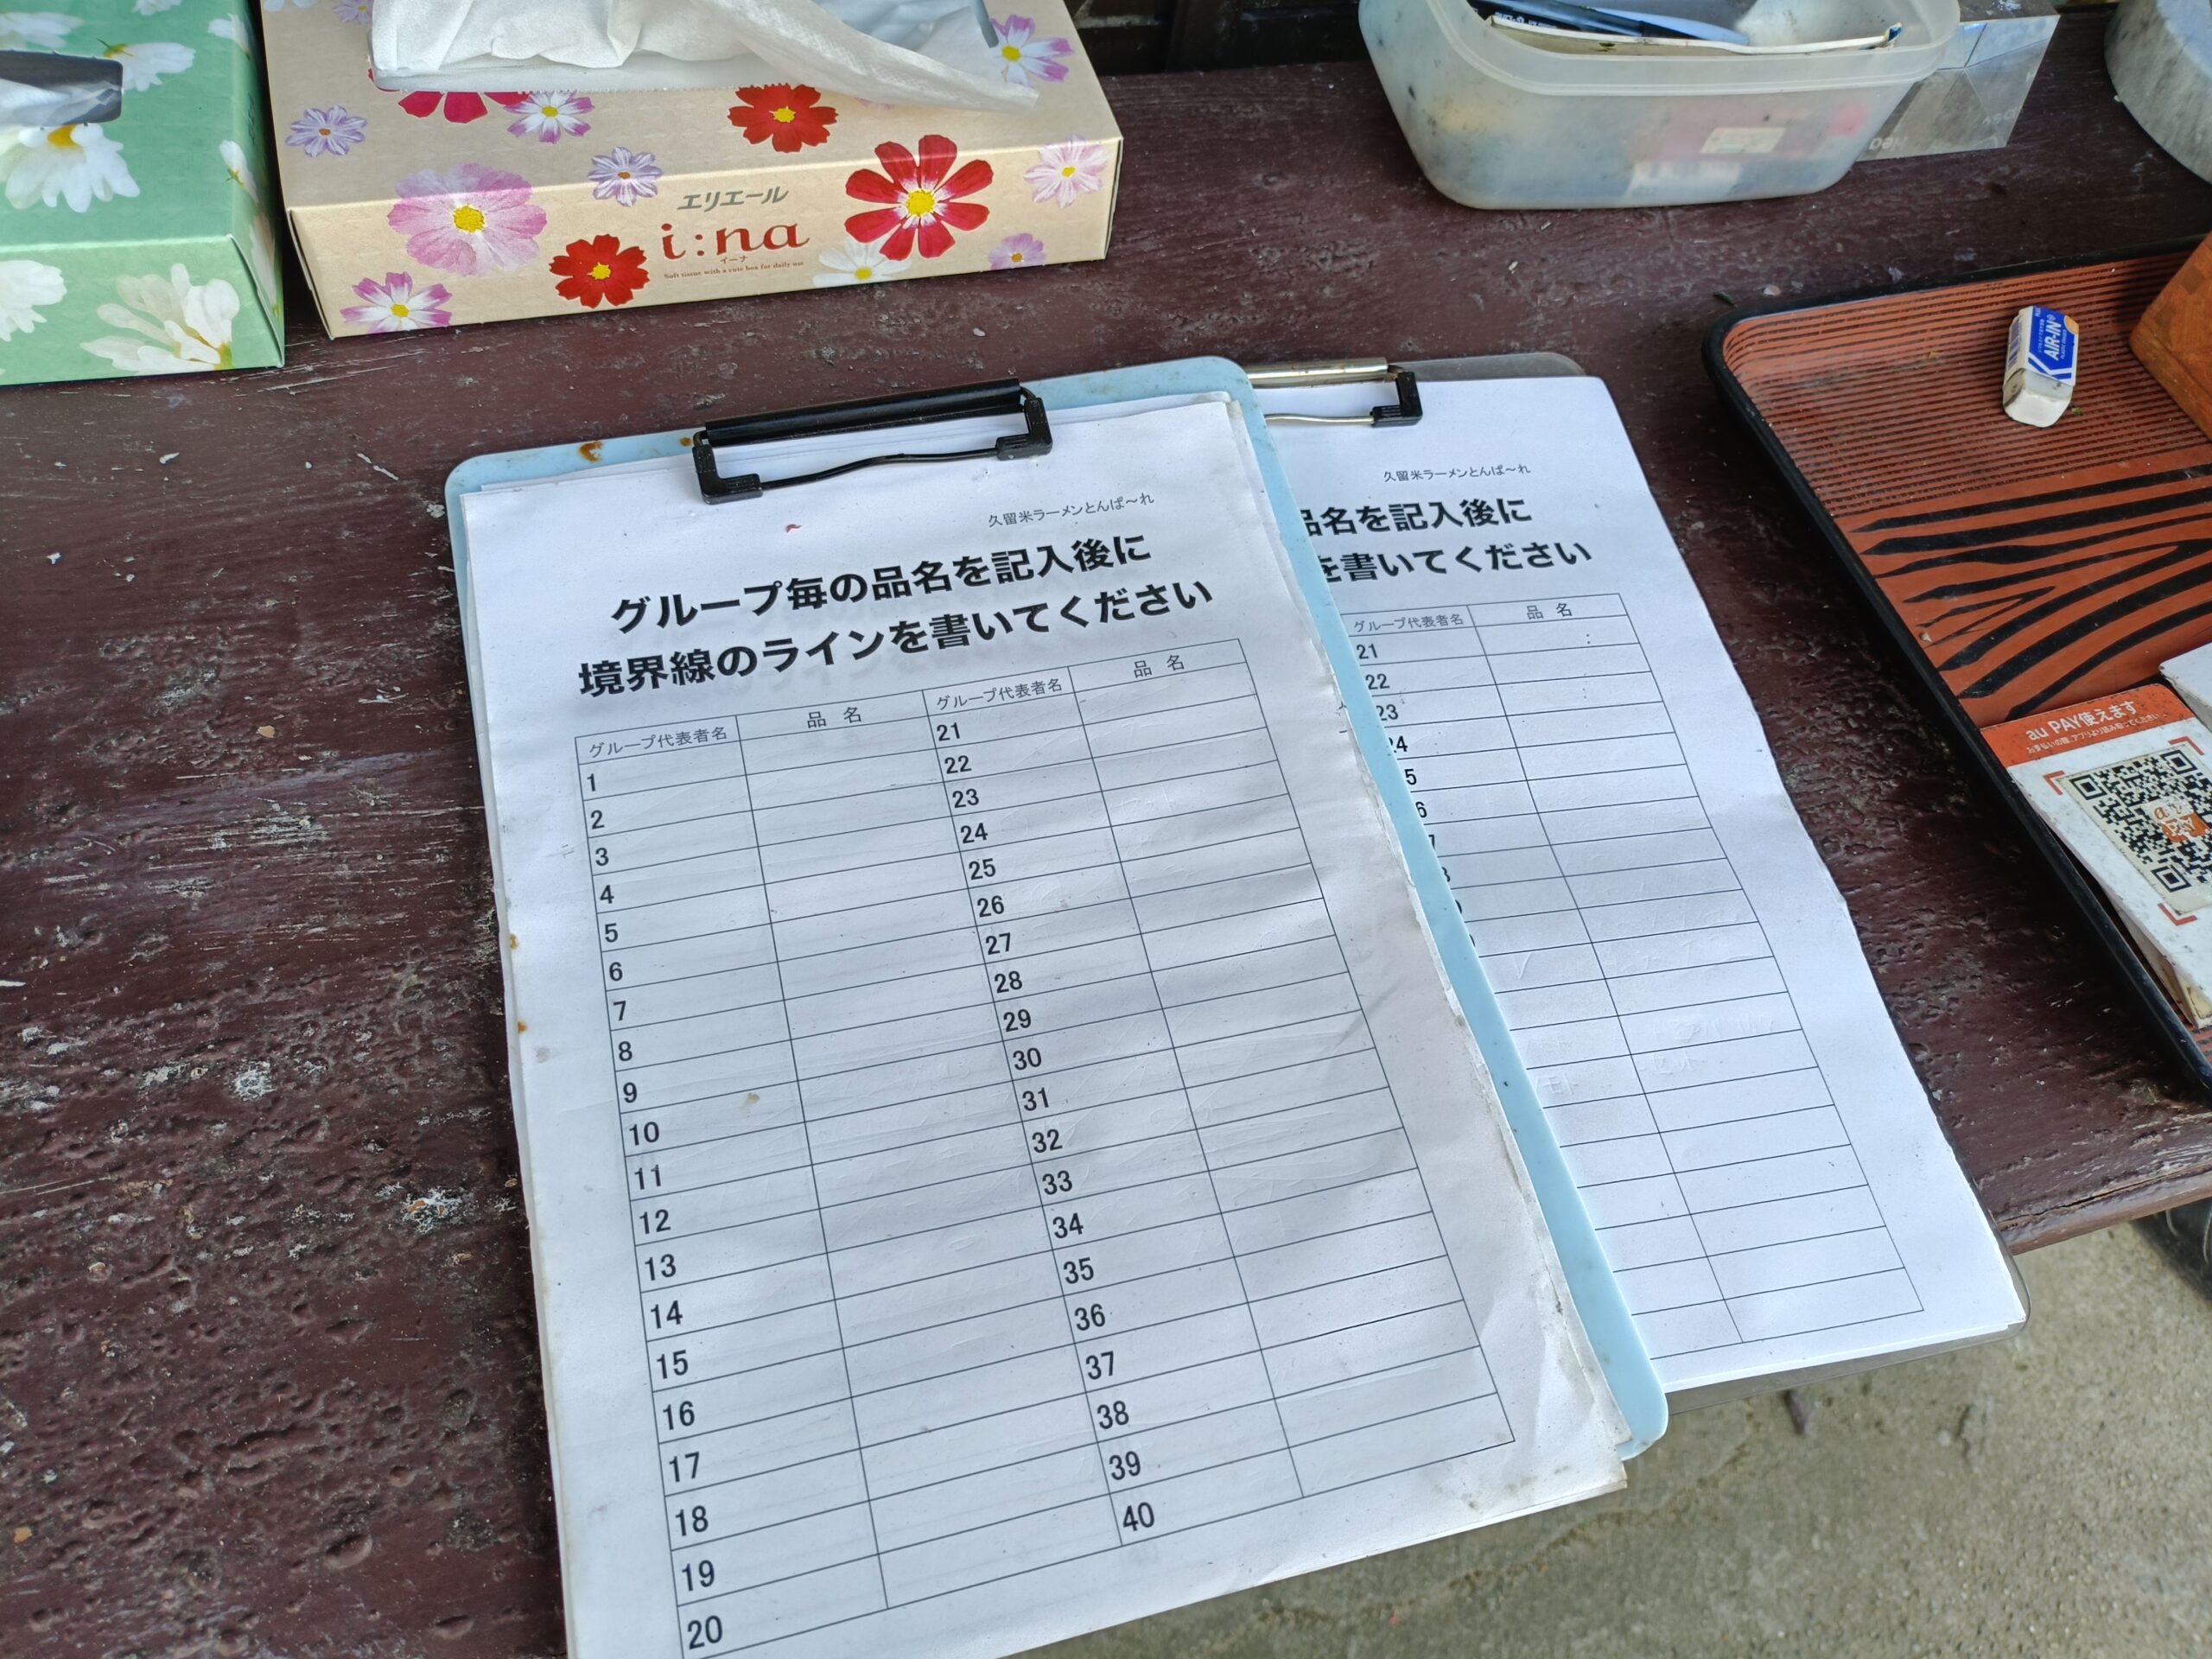 エリエール
i:na
イーナ
Soft tissue with a cute box for daily use
AIR-IN
久留米ラーメンとんぱ〜れ
グループ毎の品名を記入後に
境界線のラインを書いてください
グループ代表者名 品 名 グループ代表者名 品 名
1 21
2 22
3 23
4 24
5 25
6 26
7 27
8 28
9 29
10 30
11 31
12 32
13 33
14 34
15 35
16 36
17 37
18 38
19 39
20 40
久留米ラーメンとんぱ〜れ
品名を記入後に
を書いてください
グループ代表者名 品 名
21
22
23
24
5
6
7
8
au PAY使えます